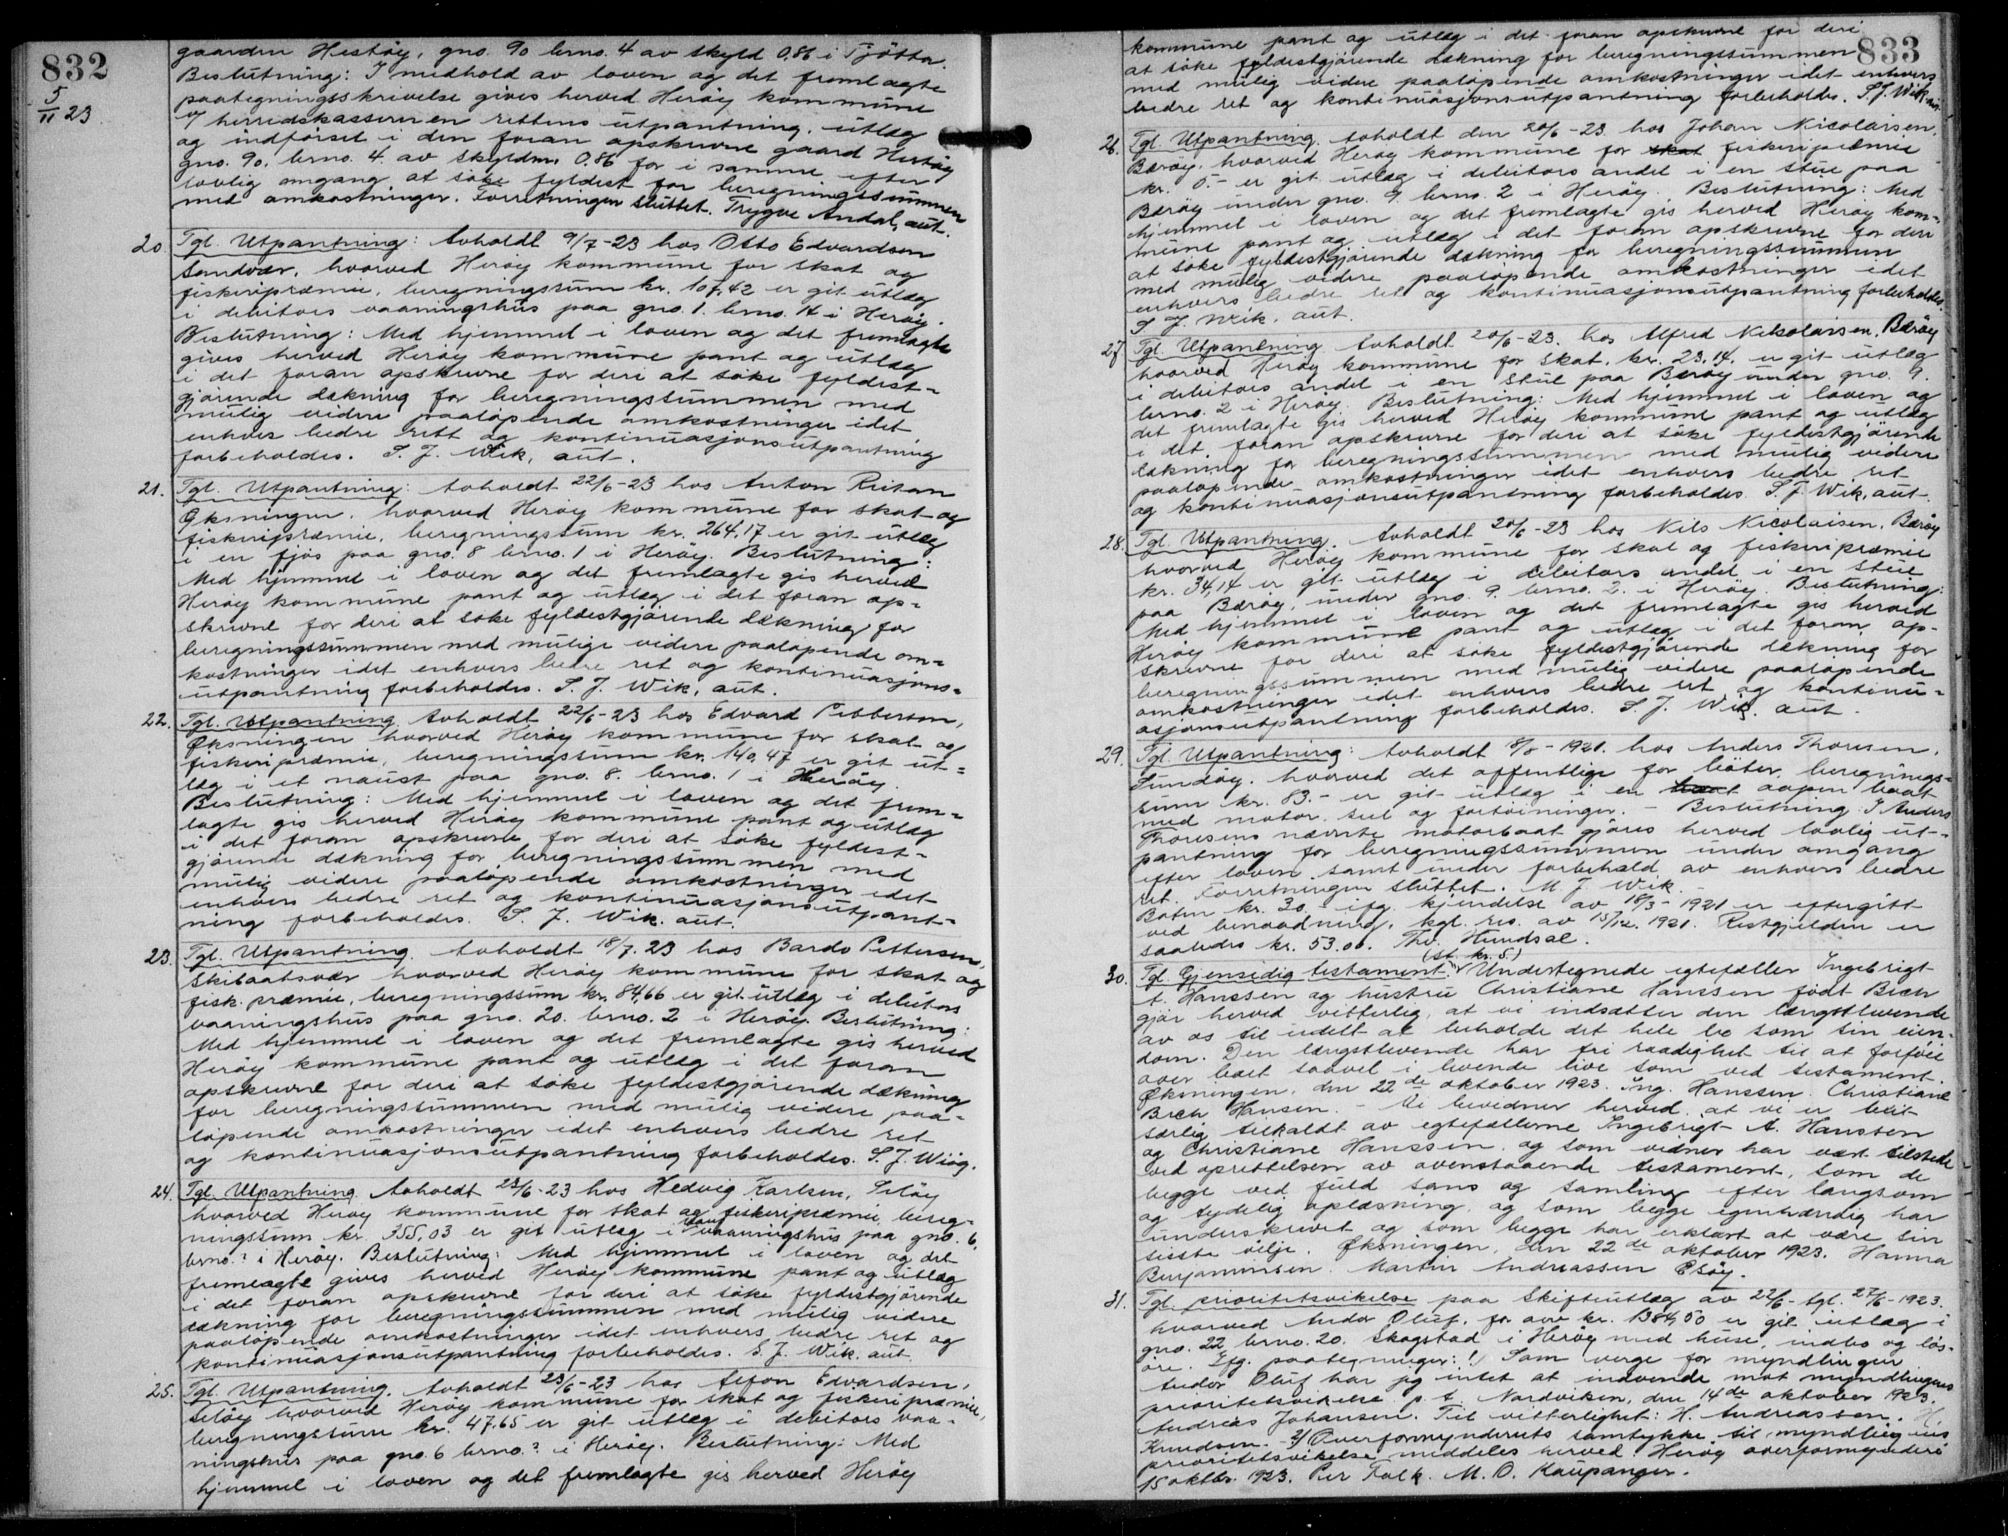 832
5/11 23
gaarden Hestöy, gno. 90 brno. 4 av skyld 0,86 i Tjötta.
Beslutning: I medhold av loven og det fremlagte
paategningsskrivelse gives herved Heröy kommune
v/ herredskassereren rettens utpantning, utlæg
og indförsel i den foran opskrevne gaard Hestöy
gno. 90, brno. 4 av skyldm. 0.86 for i samme efter
lovlig omgang at söke fyldest for beregningssummen
med omkostninger. Forretningen sluttet. Trygve Andal, aut.
20. Tgl. Utpantning: Avholdt 9/7-23 hos Otto Edvardsen
Sandvær, hvorved Heröy kommune for skat og
fiskeripræmie, beregningssum kr. 107,42 er git utlæg
i debitors vaaningshus paa gno. 1. brno. 14 i Heröy.
Beslutning: Med hjemmel i loven og det fremlagte
gives herved Heröy kommune pant og utlæg
i det foran opskrevne for deri at söke fyldest-
gjörende dækning for beregningssummen med
mulig videre paalöpende omkostninger idet
enhvers bedre rett og kontinuasjonsutpantning
forbeholdes. S. J. Wik, aut.
21. Tgl. Utpantning: Avholdt 22/6-23 hos Anton Reitan
Öksningen, hvorved Heröy kommune for skat og
fiskeripræmie, beregningssum kr. 264,17 er git utlæg
i en fjös paa gno. 8 brno. 1 i Heröy. Beslutning:
Med hjemmel i loven og det fremlagte gis herved
Heröy kommune pant og utlæg i det foran op-
skrevne for deri at söke fyldestgjörende dækning for
beregningssummen med mulige videre paalöpende om-
kostninger idet enhvers bedre ret og kontinuasjons-
utpantning forbeholdes. S. J. Wik, aut.
22. Tgl. Utpantning. Avholdt 22/6-23 hos Edvard Pebbersen,
Öksningen hvorved Heröy kommune for skat og
fiskeripræmie, beregningssum kr. 140,47 er git ut-
læg i et naust paa gno. 8. brno. 1 i Heröy.
Beslutning: Med hjemmel i loven og det frem-
lagte gis herved Heröy kommune pant og utlæg
i det foran opskrevne for deri at söke fyldest-
gjörende dækning for beregningssummen med
mulig videre paalöpende omkostninger idet
enhvers bedre ret og kontinuasjonsutpant-
ning forbeholdes. S. J. Wik. aut.
23. Tgl. Utpantning. Avholdt 18/7. 23 hos Bardo Pettersen,
Skibaatsvær hvorved Heröy kommune for skat og
fisk. præmie, beregningssum kr. 84,66 er git utlæg i debitors
vaaningshus paa gno. 20. brno. 2 i Heröy. Beslutning:
Med hjemmel i loven og det fremlagte gis herved
Heröy kommune pant og utlæg i det foran
opskrevne for deri at söke fyldestgjörende dækning
for beregningssummen med mulig videre paa-
löpende omkostninger idet enhvers bedre ret
og kontinuasjonsutpantning forbeholdes. S. J. Wiög.
24. Tgl. Utpantning Avholdt 23/6-23 hos Hedvig Karlsen, Seløy
hvorved Heröy kommune for skat og fiskeripræmie, bereg-
ningssum kr. 355,03 er git utlæg i vaaningshus paa gno. 6,
brno.? i Heröy. Beslutning: Med hjemmel i loven og det
fremlagte gives herved Heröy kommune pant og utlæg
i det foran opskrevne for deri at söke fyldestgjörende
dækning for beregningssummen med mulig videre
paalöpende omkostninger idet enhvers bedre ret og
kontinuasjonsutpantning forbeholdes. S. J. Wik. aut
25. Tgl. Utpantning. Avholdt 23/6-23 hos Edvardsen,
Selöy hvorved Heröy kommune for skat og fiskeripræmie,
beregningssum kr. 47,65 er git utlæg i debitors vaa-
ningshus paa gno. 6 brno.? i Heröy. Beslutning: Med
hjemmel i loven og det fremlagte gis herved Heröy
833
kommune pant og utlæg i det foran opskrevne for deri
at söke fyldestgjörende dækning for beregningssummen
med mulig videre paalöpende omkostninger idet enhvers
bedre ret og kontinuasjonsutpantning forbeholdes. S. J. Wik. aut.
26. Tgl. Utpantning. Avholdt den 20/6-23 hos Johan Nicolaisen,
Bæröy, hvorved Heröy kommune for skat fiskeripræmie
kr. 5.- er git utlæg i debitors andel i en stue paa
Bæröy under gno. 9. brno. 2 i Heröy. Beslutning: Med
hjemmel i loven og det fremlagte gis herved Heröy kom-
mune pant og utlæg i det foran opskrevne for deri
at söke fyldestgjörende dækning for beregningssummen
med mulig videre paalöpende omkostninger idet
enhvers bedre ret og kontinuasjonsutpantning forbeholdes.
S. J. Wik. aut.
27. Tgl. Utpantning Avholdt 20/6-23. hos Alfred Nikolaisen, Bæröy
hvorved Heröy kommune for skat, kr. 23.14, er git utlæg
i debitors andel i en stue paa Bæröy under gno. 9.
brno. 2 i Heröy. Beslutning: Med hjemmel i loven og
det fremlagte gis herved Heröy kommune pant og utlæg
i det foran opskrevne for deri at söke fyldestgjörende
dækning for beregningssummen med mulig videre
paalöpende omkostninger idet enhvers bedre ret
og kontinuasjonsutpantning forbeholdes. S. J. Wik, aut.
28. Tgl. Utpantning. Avholdt 20/6-23 hos Nils Nicolaisen, Bæröy
hvorved Heröy kommune for skat og fiskeripræmie
kr. 34,14 er git utlæg i debitors andel i en stue
paa Bæröy, under gno. 9. brno. 2. i Heröy. Beslutning:
Med hjemmel i loven og det fremlagte gis herved
Heröy kommune pant og utlæg i det foran op-
skrevne for deri at söke fyldestgjörende dækning for
beregningssummen med mulig videre paalöpende
omkostninger idet enhvers bedre ret og kontinu-
asjonsutpantning forbeholdes. S. J. Wik. aut.
29. Tgl. Utpantning: Avholdt 8/8-1921. hos Anders Thoresen,
Sundöy, hvorved det offentlige for böter, beregnings-
sum kr. 83.- er git utlæg i en aapen baat
med motor, seil og fortöininger. - Beslutning: I Anders
Thoresens nævnte motorbaat gjöres herved lovlig ut-
pantning for beregningssummen under omgang
efter loven samt under forbehold av enhvers bedre
ret. Forretningen sluttet. M. J. Wik. -
Boten kr. 30.- ifg. kjendelse av 18/3-1921 er eftergitt
ved benaadning, kgl. res. av 15/12. 1921. Restgjelden er
saaledes kr. 53.00. Thv. Hundsal.
(st. kr. 5)
30. Tgl. Gjensidig testament. Undertegnede egtefæller Ingebrigt
A. Hanssen og hustru Christiane Hanssen född Bech
gjör herved vitterlig, at vi indsætter den længstlevende
av os til udelt at beholde det hele bo som sin eien-
dom. Den længstlevende har fri raadighet til at forföie
over boet saavel i levende live som ved testament.
Öksningen, den 22de oktober 1923. Ing. Hanssen. Christiane
Bech Hansen. - Vi bevidner herved, at vi er blit
særlig tilkaldt av egtefællerne Ingebrigt A. Hanssen
og Christiane Hanssen, og som vidner har vært tilstede
ved oprettelsen av ovenstaaende testament, som de
begge ved fuld sans og samling efter langsom
og tydelig oplæsning, og som begge egenhændig har
underskrevet og som begge har erklært at være sin
sisste vilje. Öksningen, den 22de oktober 1923. Hanna
Benjaminsen. Martin Andreassen
31. Tgl. prioritetsvikelse paa skifteutlæg av 22/6- tgl. 27/6-1923.
hvorved Andor Oluf, for arv kr. 1384,50 er git utlæg i
gno. 22, brno. 20. Skogstad i Heröy med huse, indbo og lös-
öre. Ifg. paategninger: 1) Som verge for myndlingen
Andor Oluf har jeg intet at indvende mot myndlingens
prioritetsvikelse p.t. Nordviken, den 14de oktober 1923.
Andreas Johansen. Til vitterlighet: H. Andreassen. H.
Knudsen. - 2) Overformynderiets samtykke til myndlingens
prioritetsvikelse meddeles herved. Heröy overformynderi
15 oktbr. 1923. Per Falk. M. O. Kaupanger.